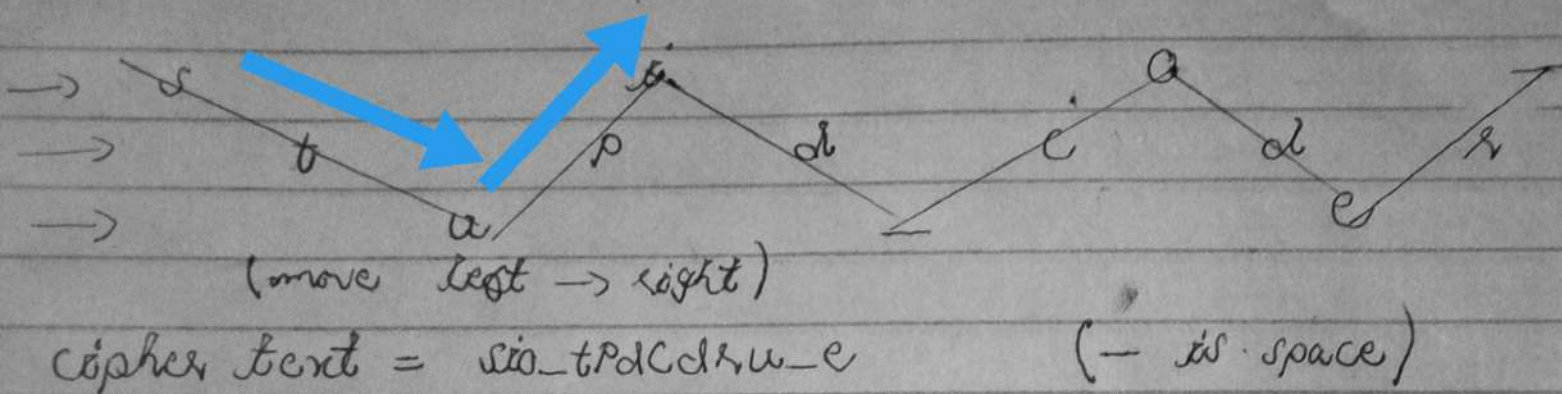 → s i o _
→ t p d c d r
→ u _ e
(move left → right)
cipher text = sio_tPdCdru_e (_ is space)